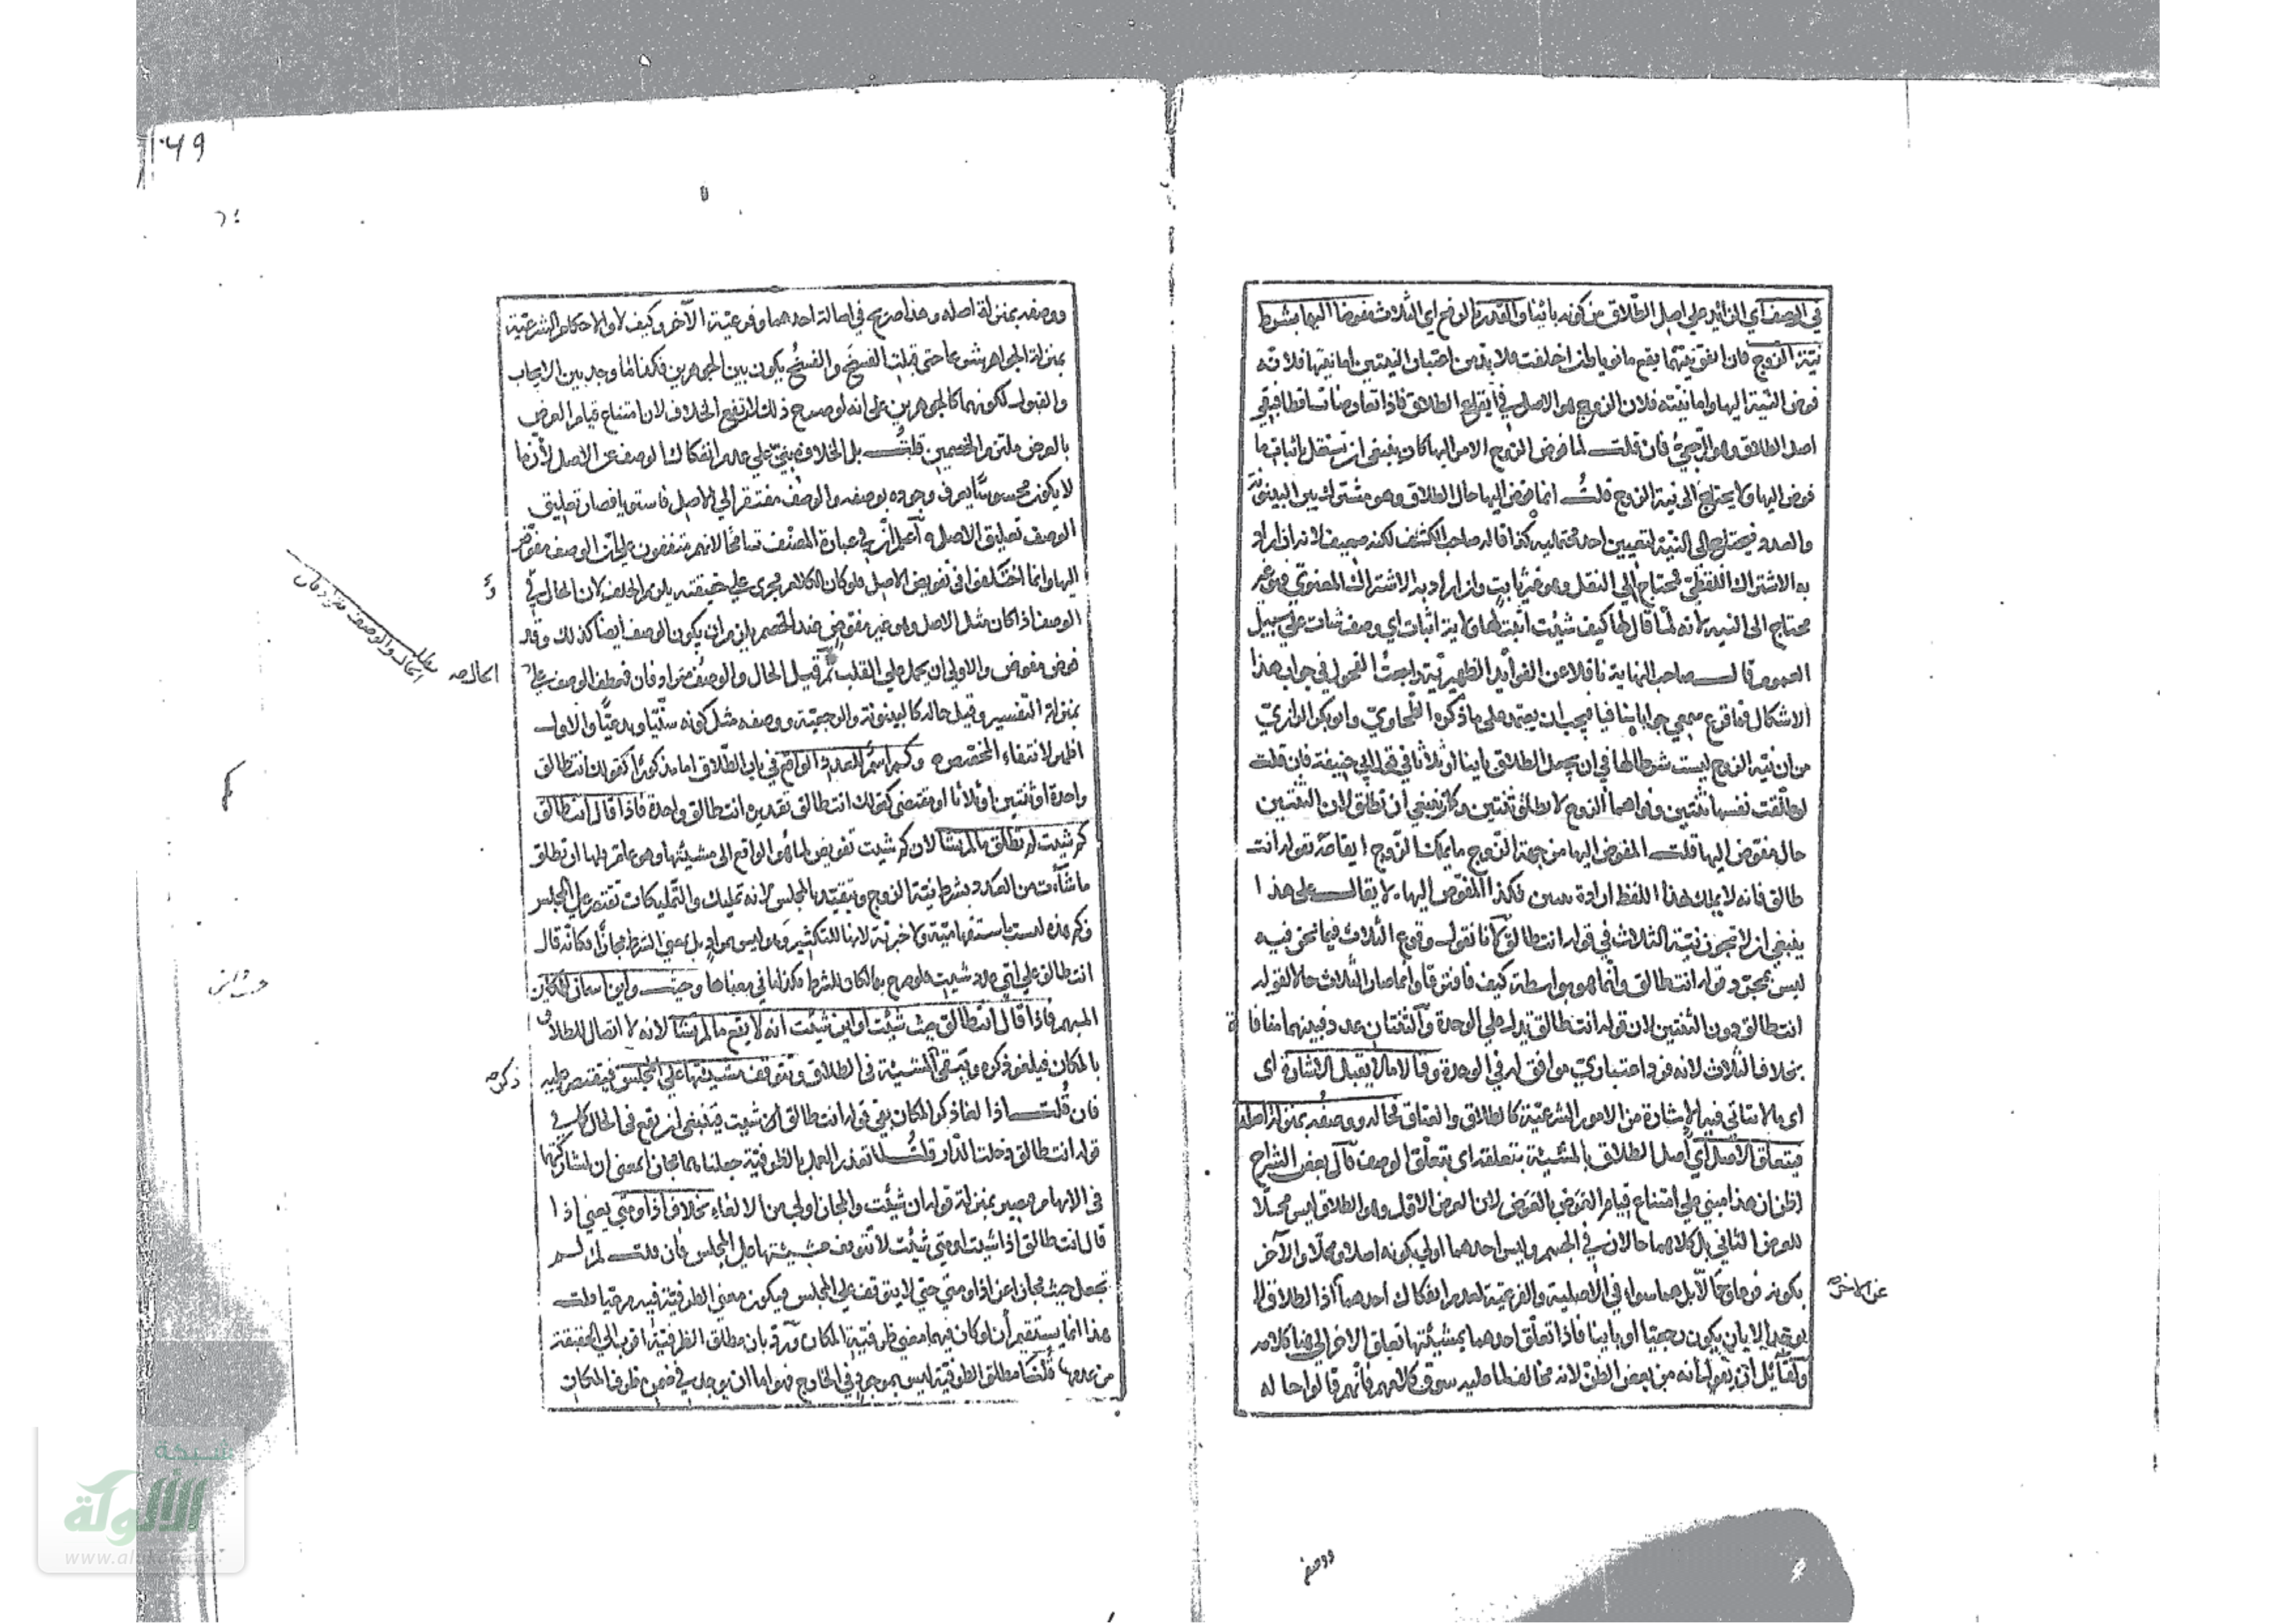 في الوصف اي الزائد على اصل الطلاق من كونه بائنا والقدر بالرفع اي الثلاث مفوضا اليها بشرط
نية الزوج فان اتفق نيتهما يقع ما نويا وان اختلفت فلا بد من اعتبار النيتين اما نيتها فلانه
فوض النية اليها واما نيته فلان الزوج هو الاصل في ايقاع الطلاق فاذا تعارضا تساقطا فبقي
اصل الطلاق وهو الرجعي فان قلت لما فوض الزوج الامر اليها كان ينبغي ان تستقل باثبات ما
فوض اليها ولا يحتاج الى نية الزوج قلت انما فوض اليها حال الطلاق وهو مشترك بين البينونة
والعدد فيحتاج الى النية لتعيين احد محتمليه كذا قاله صاحب الكشف لكنه ضعيف لانه ان اراد
به الاشتراك اللفظي فمحتاج الى النقل وهو غير ثابت وان اراد به الاشتراك المعنوي فهو غير
محتاج الى النية لانه لما قال لها كيف شئت اثبت لها ولاية اثبات اي وصف شاءت على سبيل
العموم قال صاحب النهاية ناقلا عن الفوائد الظهيرية راجعت الفحول في جواب هذا
الاشكال فما قرع سمعي جوابا شافيا فيجب ان يعتمد على ما ذكره الطحاوي وابو بكر الرازي
من ان نية الزوج ليست شرطا لها في ان يجعل الطلاق باينا او ثلاثا في قول ابي حنيفة فان قلت
لو طلقت نفسها ثنتين ونواهما الزوج لا تطلق ثنتين وكان ينبغي ان تطلق لان الثنتين
حال مفوض اليها قلت المفوض اليها من جهة الزوج ما يملك الزوج ايقاعه بقوله انت
طالق فانه لا يملك بهذا اللفظ ارادة ثنتين فكذا المفوض اليها لا يقال على هذا
ينبغي ان لا تجوز نية الثلاث في قوله انت طالق لانا نقول وقوع الثلاث فيما نحن فيه
ليس بمجرد قوله انت طالق وانما هو بواسطة كيف فافترقا وانما صار الثلاث حالا لقوله
انت طالق دون الثنتين لان قوله انت طالق يدل على الوحدة والثنتان عدد فبينهما منافاة
بخلاف الثلاث لانه فرد اعتباري موافق له في الوحدة وقالا ما لا يقبل الاشارة اى
اى ما لا يتاتي فيه الاشارة من الامور الشرعية كالطلاق والعتاق فحاله ووصفه بمنزلة اصله
فيتعلق الاصل اي اصل الطلاق بالمشيئة بتعلقه اى بتعلق الوصف قال بعض الشراح
اظن ان هذا مبني على امتناع قيام العرض بالعرض لان العرض الاول وهو الطلاق ليس محلا
للعرض الثاني بل كلاهما حالان في الجسم وليس احدهما اولى بكونه اصلا ومحلا والآخر
بكونه فرعا وحالا بل هما سواء في الاصلية والفرعية لعدم انفكاك احدهما اذ الطلاق لا
عن الاخر صح
يوجد الا بان يكون رجعيا او باينا فاذا تعلق احدهما بمشيئتها تعلق الاخر الى هنا كلامه
ولقائل ان يقول انه من بعض الظن لانه مخالف لما عليه سوق كلامهم فانهم قالوا حاله
ووصفه
ووصفه بمنزلة اصله وهذا صريح في اصالة احدهما وفرعية الآخر وكيف لا والاحكام الشرعية
بمنزلة الجواهر شرعا حتى قبلت الفسخ والفسخ يكون بين الجوهرين فكذا ما وجد بين الايجاب
والقبول لكونهما كالجوهرين على انه لو صح ذلك لارتفع الخلاف لان امتناع قيام العرض
بالعرض ملتزم الخصمين قلت بل الخلاف مبني على عدم انفكاك الوصف عن الاصل لان ما
لا يكون محسوسا يعرف وجوده بوصفه والوصف مفتقر الى الاصل فاستويا فصار تعليق
الوصف تعليق الاصل اعلم ان في عبارة المصنف تسامحا لانهم متفقون على ان الوصف مفوض
اليها وانما اختلفوا في تفويض الاصل فلو كان الكلام مجرى على حقيقته يلزم الخلف لان الحال في
الوصف اذا كان مثل الاصل وهو غير مفوض عند الخصم يلزم ان يكون الوصف ايضا كذلك وقد
فرض مفوض والاولى ان يحمل على القلب ثم قيل الحال والوصف مترادفان فعطف الوصف على
الحال صح
الحال والوصف مترادفان
بمنزلة التفسير وقيل حاله كالبينونة والرجعية ووصفه مثل كونه سنيا وبدعيا والاول
اظهر لانتفاء المخصص وكم اسم للعدد الواقع في باب الطلاق اما مذكورا كقولك انت طالق
واحدة او ثنتين او ثلاثا او مقتضى كقولك انت طالق تقديره انت طالق واحدة فاذا قال انت طالق
كم شئت لم تطلق ما لم تشا لان كم شئت تفويض لما هو الواقع الى مشيئتها وهو عام فلها ان تطلق
ما شاءت من العدد بشرط نية الزوج ويتقيد بالمجلس لانه تمليك والتمليكات تقتصر على المجلس
وكم هذه ليست باستفهامية ولا خبرية لانها للتكثير وهو ليس بمراد بل بمعنى الشرط مجازا فكانه قال
انت طالق على اي عدد شئت وحيث واين اسمان للمكان
المبهم فاذا قال انت طالق حيث شئت او اين شئت انه لا يقع ما لم تشا لانه لا اتصال للطلاق
بالمكان فيلغو ذكره ويبقى المشيئة في الطلاق ويتوقف مشيئتها على المجلس فيقتصر عليه
ذكره صح
فان قلت اذا لغا ذكر المكان بقي قوله انت طالق ان شئت فينبغي ان يقع في الحال كما في
قوله انت طالق دخلت الدار قلت لما تعذر العمل بالظرفية جعلناهما مجازا بمعنى ان لمشاركتهما
في الابهام فيصير بمنزلة قوله ان شئت والمجاز اولى من الالغاء بخلاف اذا ومتى يعني اذا
قال انت طالق اذا شئت او متى شئت لا تتوقف مشيئتها على المجلس فان قلت لم لم
تجعل حيث مجازا عن اذا ومتى حتى لا يتوقف على المجلس فيكون معنى الظرفية فيه مرعيا قلت
هذا انما يستقيم ان لو كان فيهما معنى ظرفية المكان ورد بان مطلق الظرفية اقرب الى الحقيقة
من عدمها قلنا مطلق الظرفية ليس بموجود في الخارج فهو اما ان يوجد في ضمن ظرف المكان
شبكة
الألوكة